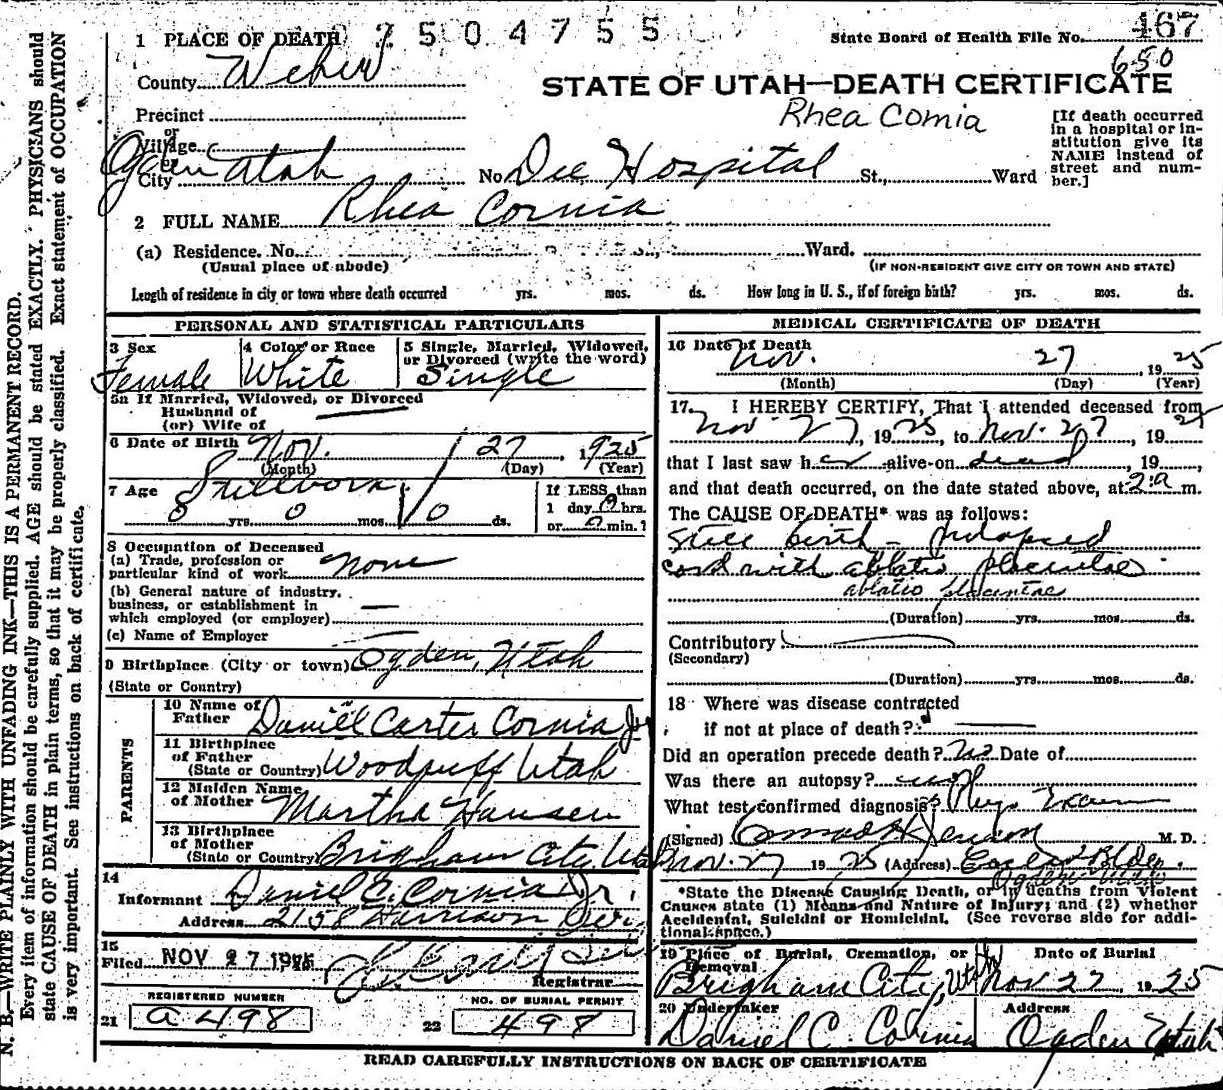 1 PLACE OF DEATH 2504755
State Board of Health File No. 467
650
County Weber
STATE OF UTAH—DEATH CERTIFICATE
Rhea Cornia
Precinct
or
Village
or
City Ogden Utah
No. Dee Hospital St., Ward
[If death occurred
in a hospital or in-
stitution give its
NAME instead of
street and num-
ber.]
2 FULL NAME Rhea Cornia
(a) Residence. No. St., Ward.
(Usual place of abode)
(IF NON-RESIDENT GIVE CITY OR TOWN AND STATE)
Length of residence in city or town where death occurred yrs. mos. ds. How long in U. S., if of foreign birth? yrs. mos. ds.
PERSONAL AND STATISTICAL PARTICULARS
3 Sex
Female
4 Color or Race
White
5 Single, Married, Widowed,
or Divorced (write the word)
Single
5a If Married, Widowed, or Divorced
Husband of
(or) Wife of
6 Date of Birth Nov. 27, 1925
(Month) (Day) (Year)
7 Age Stillborn
0 yrs. 0 mos. 0 ds.
If LESS than
1 day 0 hrs.
or 0 min.?
8 Occupation of Deceased
(a) Trade, profession or
particular kind of work None
(b) General nature of industry,
business, or establishment in
which employed (or employer) —
(c) Name of Employer
9 Birthplace (City or town) Ogden, Utah
(State or Country)
PARENTS
10 Name of
Father Daniel Carter Cornia Jr
11 Birthplace
of Father
(State or Country) Woodruff Utah
12 Maiden Name
of Mother Martha Hansen
13 Birthplace
of Mother
(State or Country) Brigham City, Utah
14
Informant Daniel C. Cornia Jr.
Address 2158 Harrison Ave
15
Filed NOV 27 1925
Registrar
REGISTERED NUMBER
21 a 498
NO. OF BURIAL PERMIT
22 498
MEDICAL CERTIFICATE OF DEATH
16 Date of Death
Nov. 27, 1925
(Month) (Day) (Year)
17. I HEREBY CERTIFY, That I attended deceased from
Nov-27, 1925, to Nov-27, 1925
that I last saw her alive on dead, 19
and that death occurred, on the date stated above, at 2:a m.
The CAUSE OF DEATH* was as follows:
Still birth - prolapsed
cord with ablatio placentae
ablatio placentae
(Duration) yrs. mos. ds.
Contributory
(Secondary)
(Duration) yrs. mos. ds.
18 Where was disease contracted
if not at place of death?
Did an operation precede death? No Date of
Was there an autopsy?
What test confirmed diagnosis? Phys Exam
(Signed) M. D.
Nov. 27 1925 (Address) Eccles Bldg.
Ogden Utah
*State the Disease Causing Death, or in deaths from Violent
Causes state (1) Means and Nature of Injury; and (2) whether
Accidental, Suicidal or Homicidal. (See reverse side for addi-
tional space.)
19 Place of Burial, Cremation, or
Removal
Brigham City, Utah
Date of Burial
Nov 27 1925
20 Undertaker
Daniel C. Cornia
Address
Ogden Utah
READ CAREFULLY INSTRUCTIONS ON BACK OF CERTIFICATE
N. B.—WRITE PLAINLY WITH UNFADING INK—THIS IS A PERMANENT RECORD.
Every item of information should be carefully supplied. AGE should be stated EXACTLY. PHYSICIANS should
state CAUSE OF DEATH in plain terms, so that it may be properly classified. Exact statement of OCCUPATION
is very important. See instructions on back of certificate.